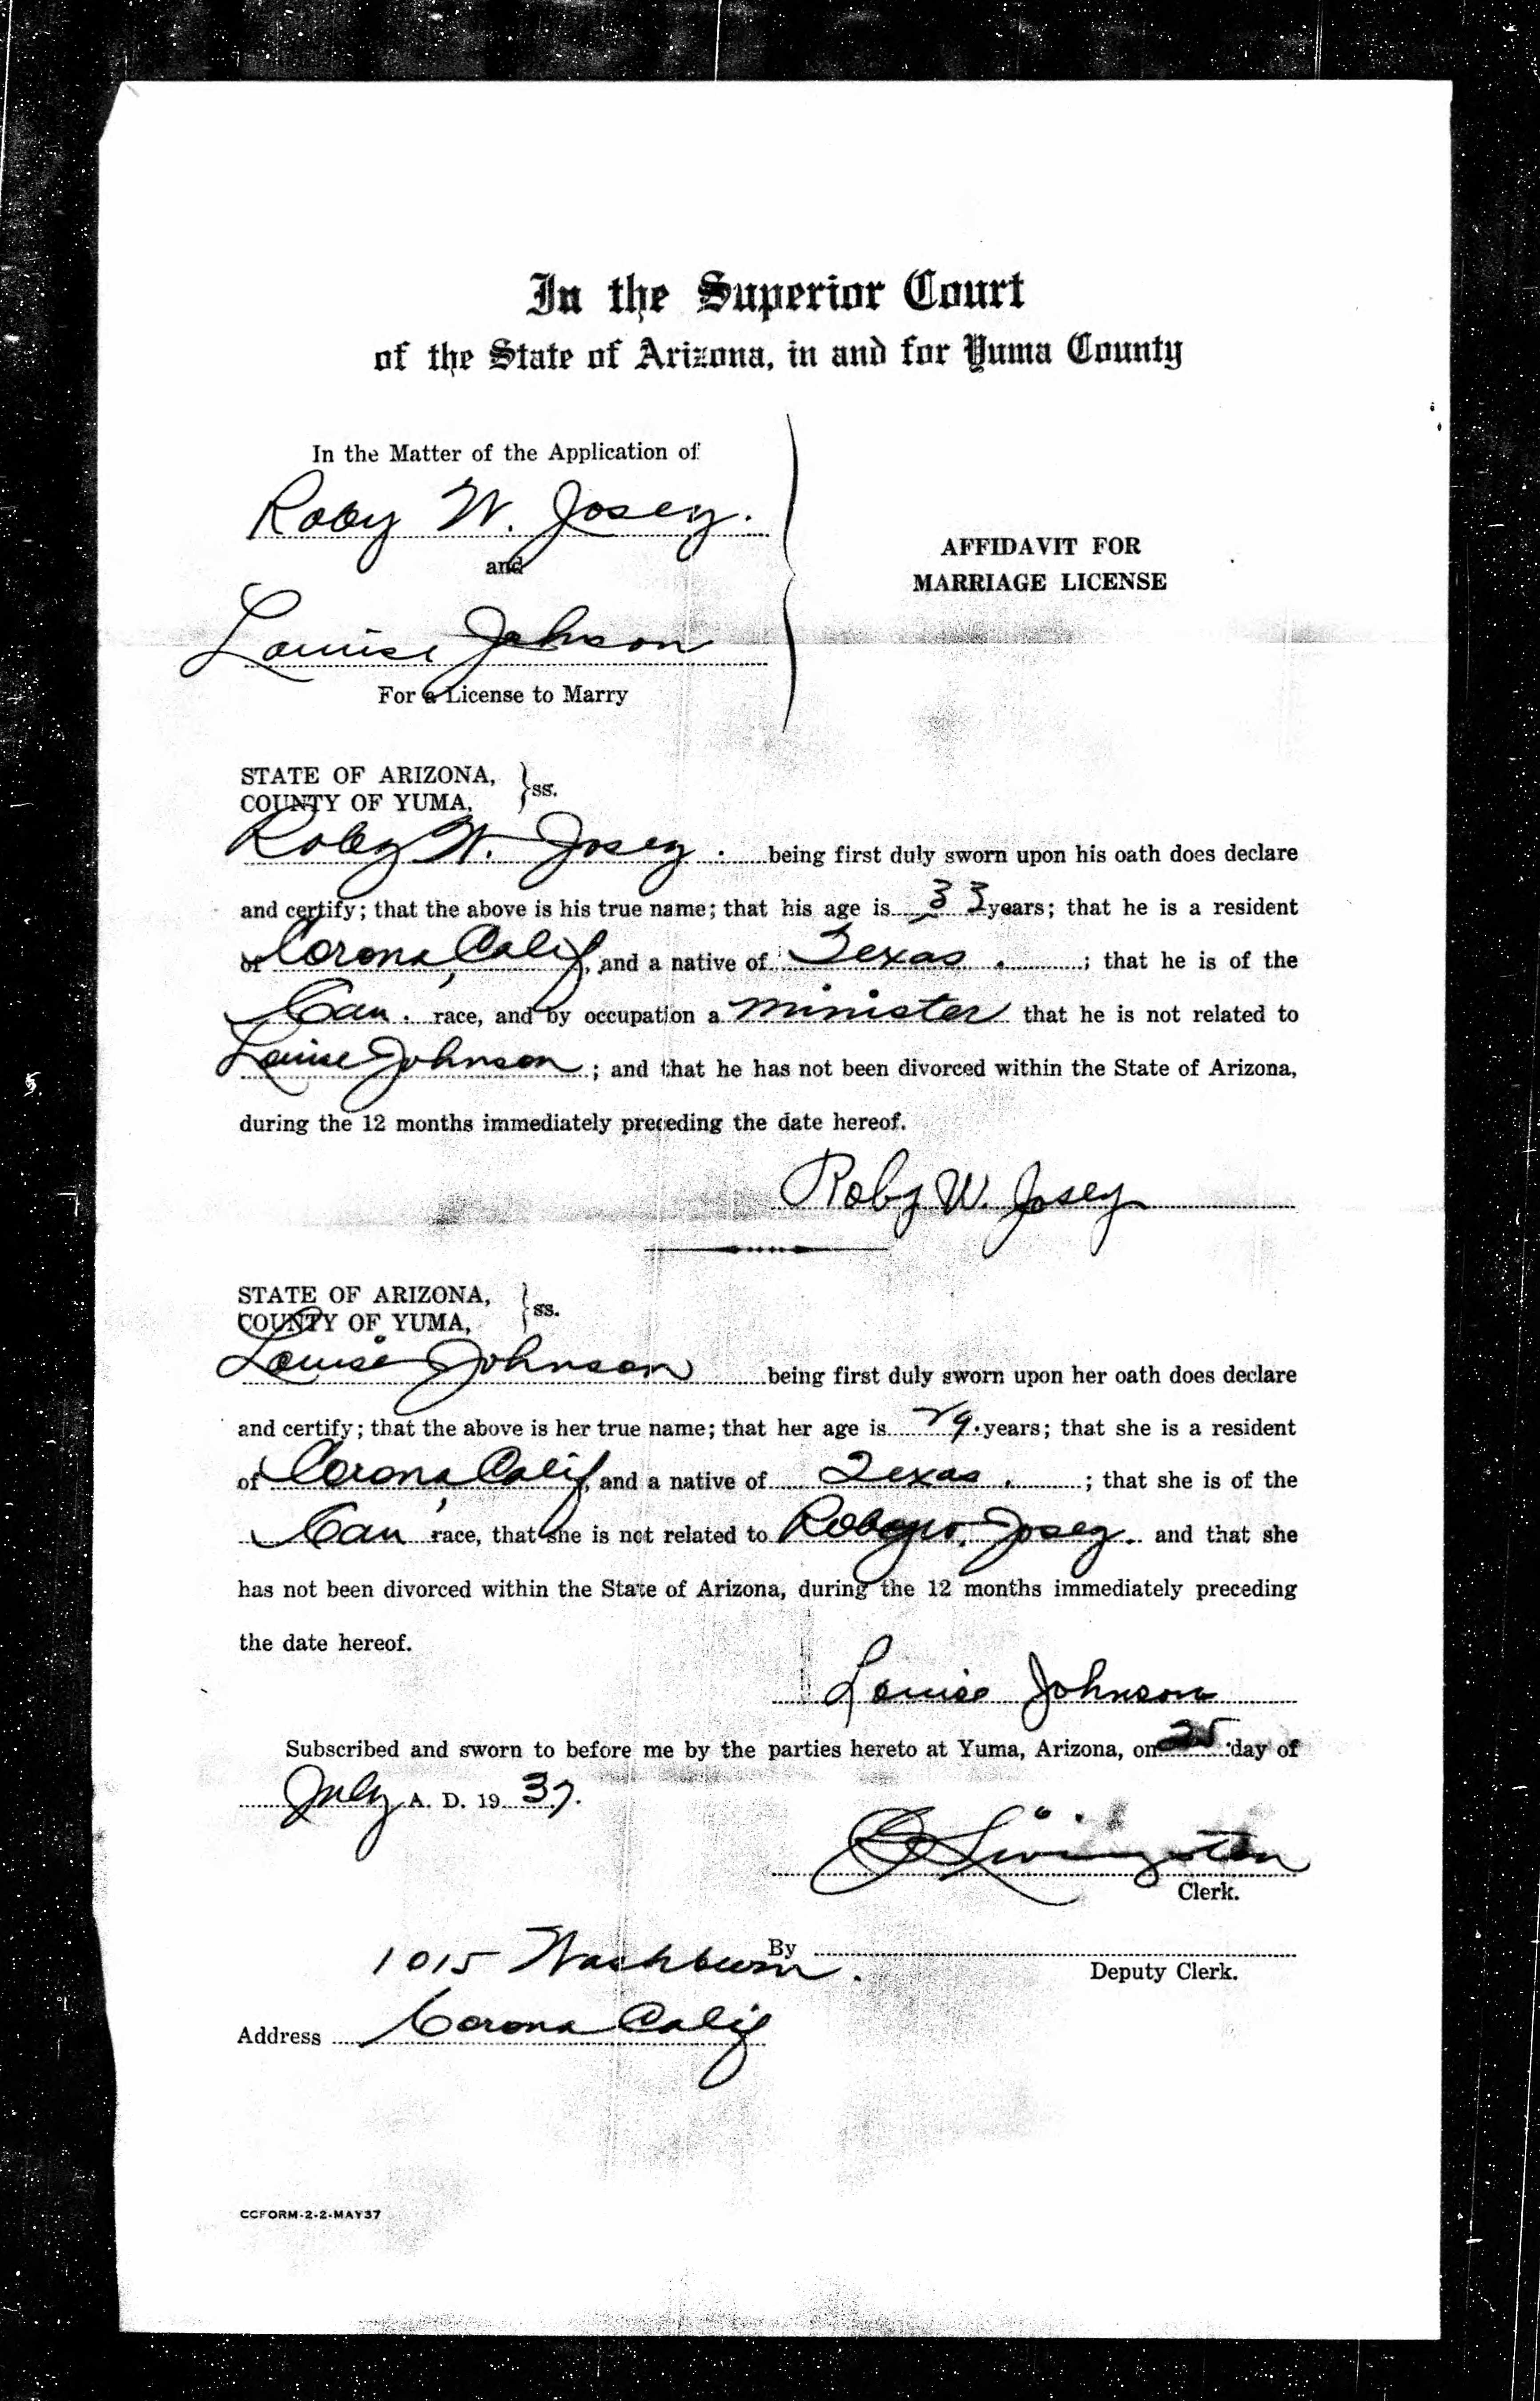 In the Superior Court
of the State of Arizona, in and for Yuma County
In the Matter of the Application of
Roby W. Josey.
and
Louise Johnson
For a License to Marry
AFFIDAVIT FOR
MARRIAGE LICENSE
STATE OF ARIZONA,
COUNTY OF YUMA, } ss.
Roby W. Josey. being first duly sworn upon his oath does declare
and certify; that the above is his true name; that his age is 33 years; that he is a resident
of Corona, Calif, and a native of Texas. ; that he is of the
Cau. race, and by occupation a minister that he is not related to
Louise Johnson ; and that he has not been divorced within the State of Arizona,
during the 12 months immediately preceding the date hereof.
Roby W. Josey
STATE OF ARIZONA,
COUNTY OF YUMA, } ss.
Louise Johnson being first duly sworn upon her oath does declare
and certify; that the above is her true name; that her age is 29. years; that she is a resident
of Corona, Calif, and a native of Texas. ; that she is of the
Cau race, that she is not related to Roby W. Josey. and that she
has not been divorced within the State of Arizona, during the 12 months immediately preceding
the date hereof.
Louise Johnson
Subscribed and sworn to before me by the parties hereto at Yuma, Arizona, on 25 day of
July A. D. 19 37.
Livingston
Clerk.
By
Deputy Clerk.
1015 Washburn.
Address Corona Calif
CCFORM-2-2-MAY37